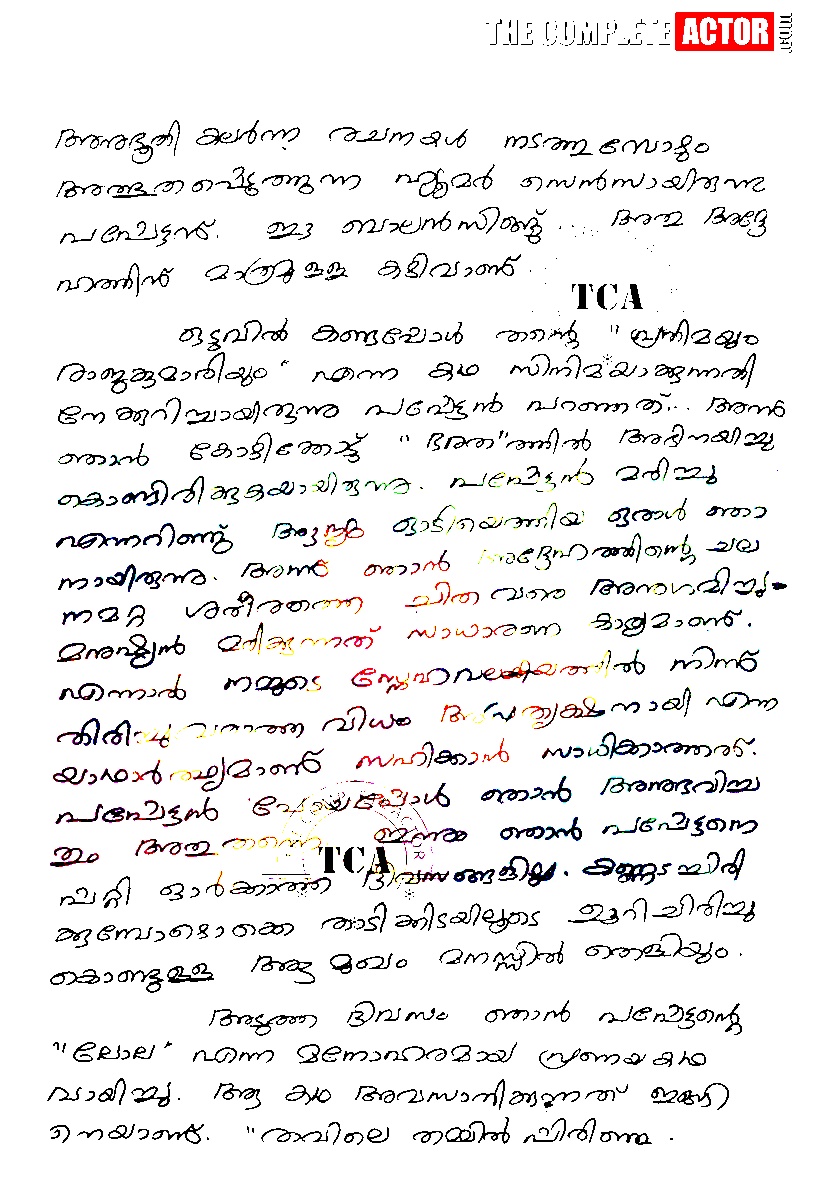 THE COMPLETE ACTOR .COM
അനുഭൂതി കലർന്ന രചനകൾ നടത്തുമ്പോഴും
അത്ഭുതപ്പെടുത്തുന്ന ഹ്യൂമർ സെൻസായിരുന്നു
പപ്പേട്ടന്. ഈ ബാലൻസിങ്ങ് .... അത് അദ്ദേ
ഹത്തിന് മാത്രമുള്ള കഴിവാണ്
TCA
ഒടുവിൽ കണ്ടപ്പോൾ തന്റെ "പ്രതിമയും
രാജകുമാരിയും" എന്ന കഥ സിനിമയാക്കുന്നതി
നേക്കുറിച്ചായിരുന്നു പപ്പേട്ടൻ പറഞ്ഞത്... അന്ന്
ഞാൻ കോഴിക്കോട്ട് "ഭരത"ത്തിൽ അഭിനയിച്ചു
കൊണ്ടിരിക്കുകയായിരുന്നു. പപ്പേട്ടൻ മരിച്ചു
എന്നറിഞ്ഞ് ആദ്യം ഓടിയെത്തിയ ഒരാൾ ഞാ
നായിരുന്നു. അന്ന് ഞാൻ അദ്ദേഹത്തിന്റെ ചല
നമറ്റ ശരീരത്തെ ചിത വരെ അനുഗമിച്ചു
മനുഷ്യൻ മരിക്കുന്നത് സാധാരണ കാര്യമാണ്.
എന്നാൽ നമ്മുടെ സ്നേഹവലയത്തിൽ നിന്ന്
തിരിച്ചു വരാത്ത വിധം അപ്രത്യക്ഷനായി എന്ന
യാഥാർത്ഥ്യമാണ് സഹിക്കാൻ സാധിക്കാത്തത്.
പപ്പേട്ടൻ പോയപ്പോൾ ഞാൻ അനുഭവിച്ച
തും അതു തന്നെ ഇന്നും ഞാൻ പപ്പേട്ടനെ
TCA
പറ്റി ഓർക്കാത്ത ദിവസങ്ങളില്ല. കണ്ണടച്ചിരി
ക്കുമ്പോഴൊക്കെ താടിക്കിടയിലൂടെ ഊറിചിരിച്ചു
കൊണ്ടുള്ള ആ മുഖം മനസ്സിൽ തെളിയും.
അടുത്ത ദിവസം ഞാൻ പപ്പേട്ടന്റെ
"ലോല" എന്ന മനോഹരമായ പ്രണയകഥ
വായിച്ചു. ആ കഥ അവസാനിക്കുന്നത് ഇങ്ങി
നെയാണ്. "രാവിലെ തമ്മിൽ പിരിഞ്ഞു.